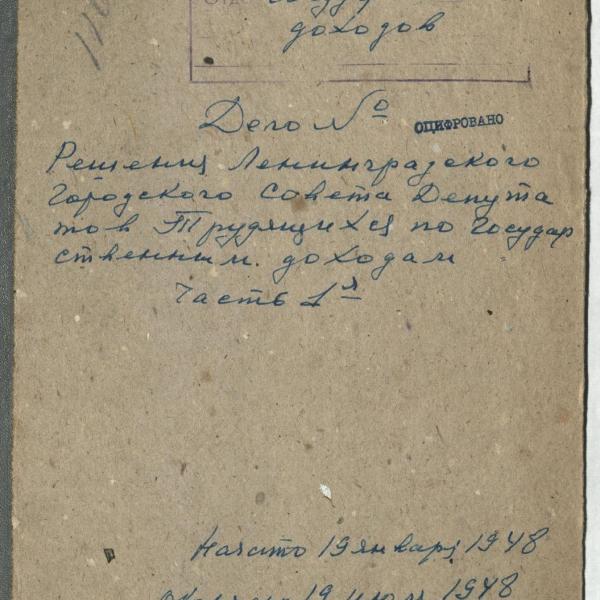 доходов
Дело №
ОЦИФРОВАНО
Решения Ленинградского
Городского Совета Депута
тов Трудящихся по Государ
ственным. доходам
Часть 1я
Начато 19 январ 1948
19 1948